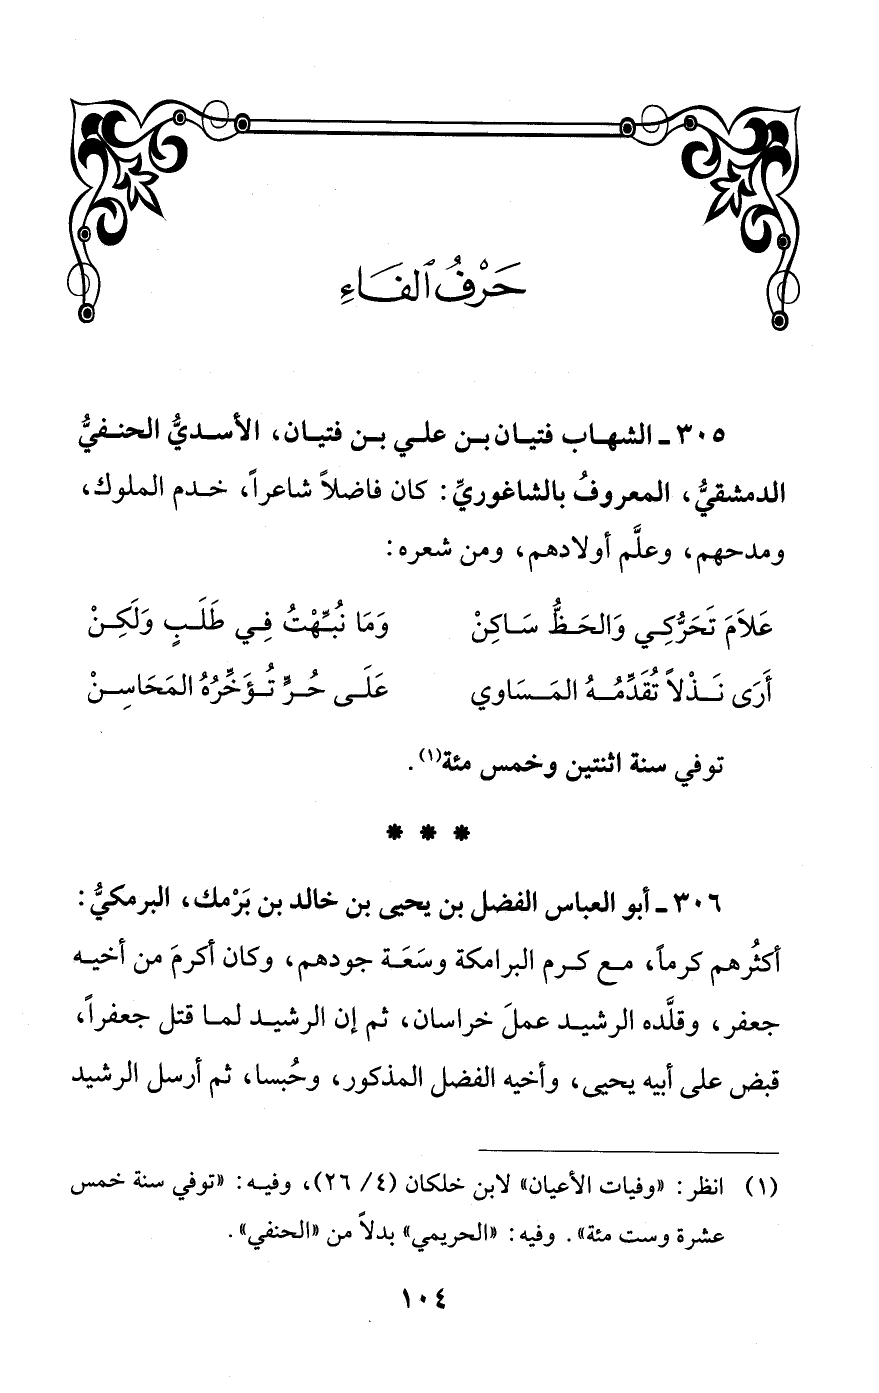 حَرْفُ ٱلفَاءِ
٣٠٥ ـ الشهاب فتيان بن علي بن فتيان، الأسديُّ الحنفيُّ
الدمشقيُّ، المعروفُ بالشاغوريِّ: كان فاضلاً شاعراً، خدم الملوك،
ومدحهم، وعلَّم أولادهم، ومن شعره:
عَلاَمَ تَحَرُّكِي وَالحَظُّ سَاكِنْ وَمَا نُبِّهْتُ فِي طَلَبٍ وَلَكِنْ
أَرَى نَذْلاً تُقَدِّمُهُ المَسَاوِي عَلَى حُرٍّ تُؤَخِّرُهُ المَحَاسِنْ
توفي سنة اثنتين وخمس مئة(١).
* * *
٣٠٦ ـ أبو العباس الفضل بن يحيى بن خالد بن بَرْمك، البرمكيُّ:
أكثُرهم كرماً، مع كرم البرامكة وسَعَة جودهم، وكان أكرمَ من أخيه
جعفر، وقلَّده الرشيد عملَ خراسان، ثم إن الرشيد لما قتل جعفراً،
قبض على أبيه يحيى، وأخيه الفضل المذكور، وحُبسا، ثم أرسل الرشيد
(١) انظر: «وفيات الأعيان» لابن خلكان (٤/ ٢٦)، وفيه: «توفي سنة خمس
عشرة وست مئة». وفيه: «الحريمي» بدلاً من «الحنفي».
١٠٤